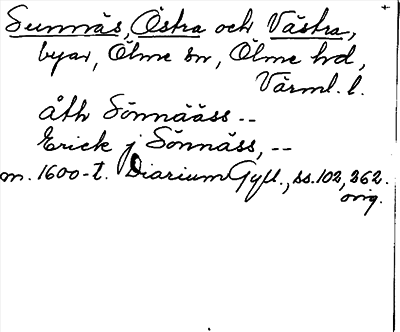 Sunnäs, Östra och Västra,
byar, Ölme sn, Ölme hd,
Värml. l.
åth Sönnääss --
Erick j Sönnäss, --
m. 1600-t. Diarium Gyll., ss. 102, 362.
orig.